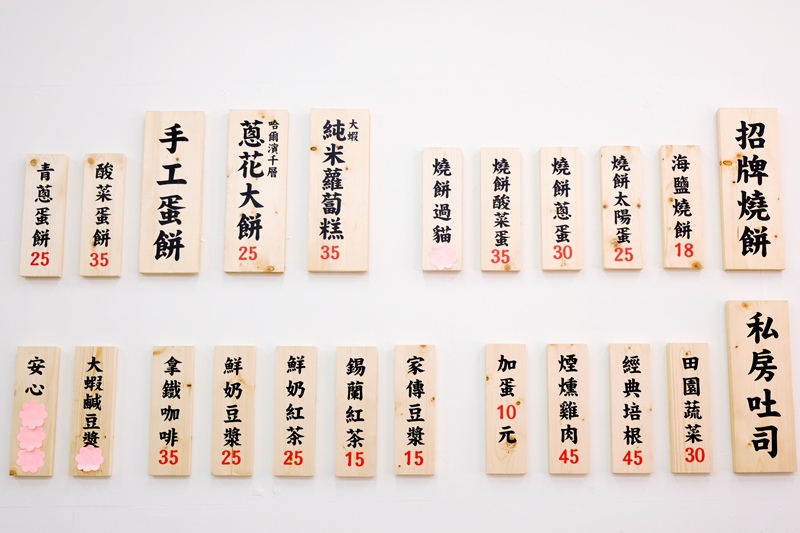 招牌燒餅
海鹽燒餅
18
燒餅太陽蛋
25
燒餅蔥蛋
30
燒餅酸菜蛋
35
燒餅過貓
大蝦
純米蘿蔔糕
35
哈爾濱千層
蔥花大餅
25
手工蛋餅
酸菜蛋餅
35
青蔥蛋餅
25
私房吐司
田園蔬菜
30
經典培根
45
煙燻雞肉
45
加蛋10元
家傳豆漿
15
錫蘭紅茶
15
鮮奶紅茶
25
鮮奶豆漿
25
拿鐵咖啡
35
大蝦鹹豆漿
安心